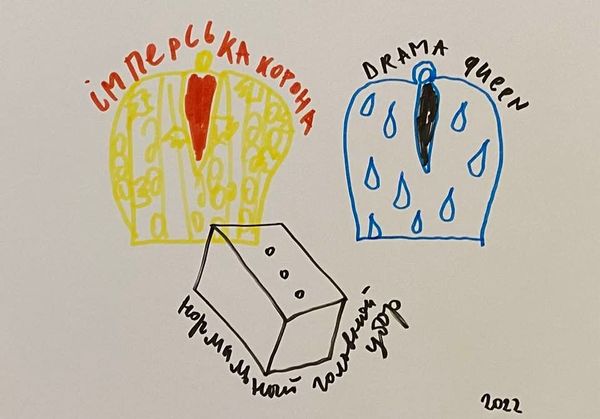 імперська корона
DRAMA queen
нормальный головный убор
2022